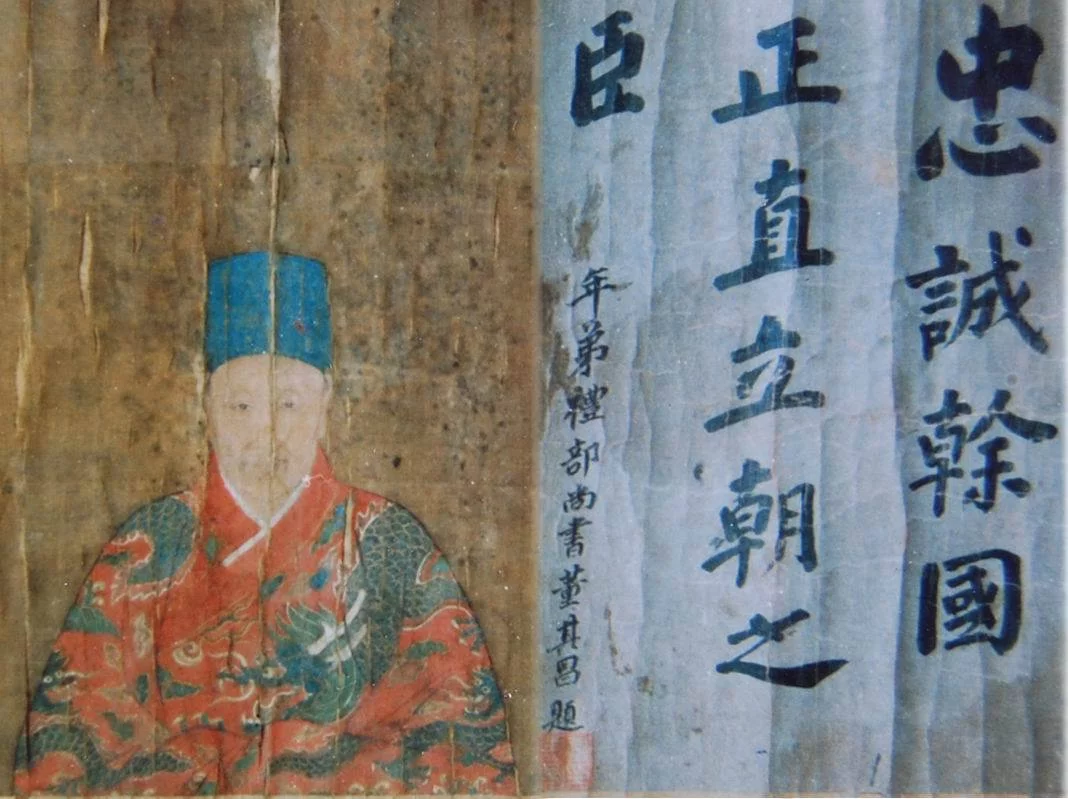 忠誠幹國
正直立朝之
臣
年弟禮部尚書董其昌題